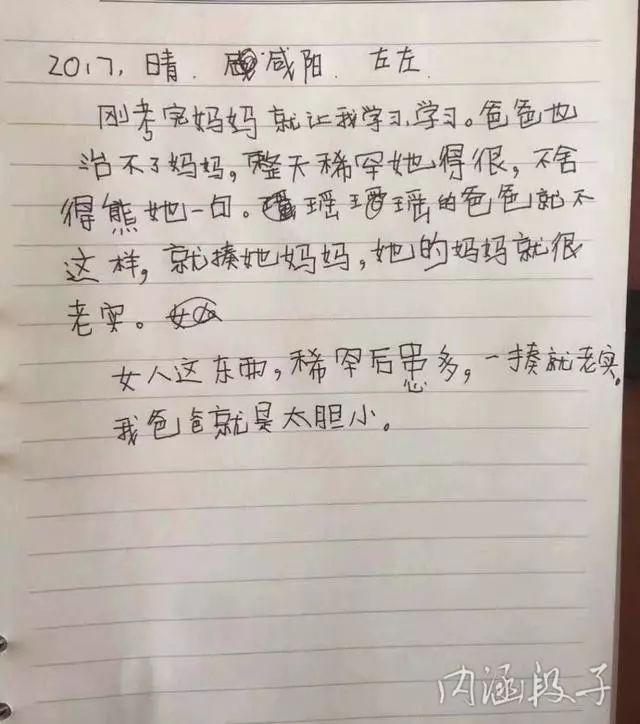 2017, 晴. 咸阳. 左左
刚考完妈妈就让我学习学习。爸爸也
治不了妈妈,整天稀罕她得很,不舍
得熊她一句。瑶瑶的爸爸就不
这样,就揍她妈妈,她的妈妈就很
老实。
女人这东西,稀罕后患多,一揍就老实。
我爸爸就是太胆小。
内涵段子